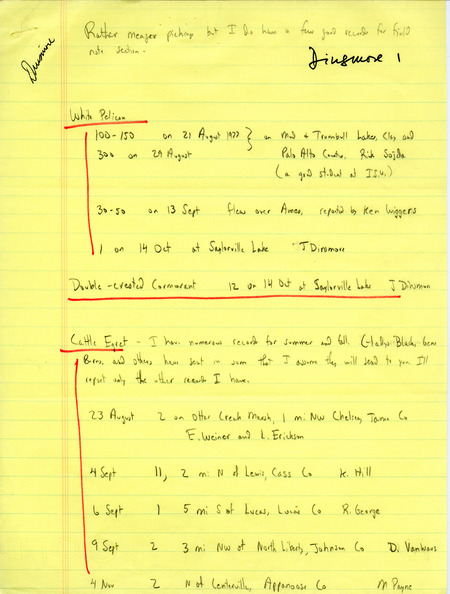 Rather meager pickup but I do have a few good records for field
note section.
Dinsmore
Dinsmore 1
White Pelican
100-150 on 21 August 1977 } on Mud & Trumbull Lakes, Clay and
300 on 29 August Palo Alto Counties, Rick Sojda
(a grad student at I.S.U.)
30-50 on 13 Sept flew over Ames, reported by Ken Wiggers
1 on 14 Oct at Saylorville Lake J Dinsmore
Double-crested Cormorant 12 on 14 Oct at Saylorville Lake J Dinsmore
Cattle Egret - I have numerous records for summer and fall. Gladys Black, Gene
Burns, and others have sent in some that I assume they will send to you. I'll
report only the other records I have.
23 August 2 on Otter Creek Marsh, 1 mi NW Chelsea, Tama Co
E. Weiner and L. Erickson
4 Sept 11, 2 mi N of Lewis, Cass Co K. Hill
6 Sept 1 5 mi S of Lucas, Lucas Co R. George
9 Sept 2 3 mi NW of North Liberty, Johnson Co D. Vanhaus
4 Nov 2 N of Centerville, Appanoose Co M Payne